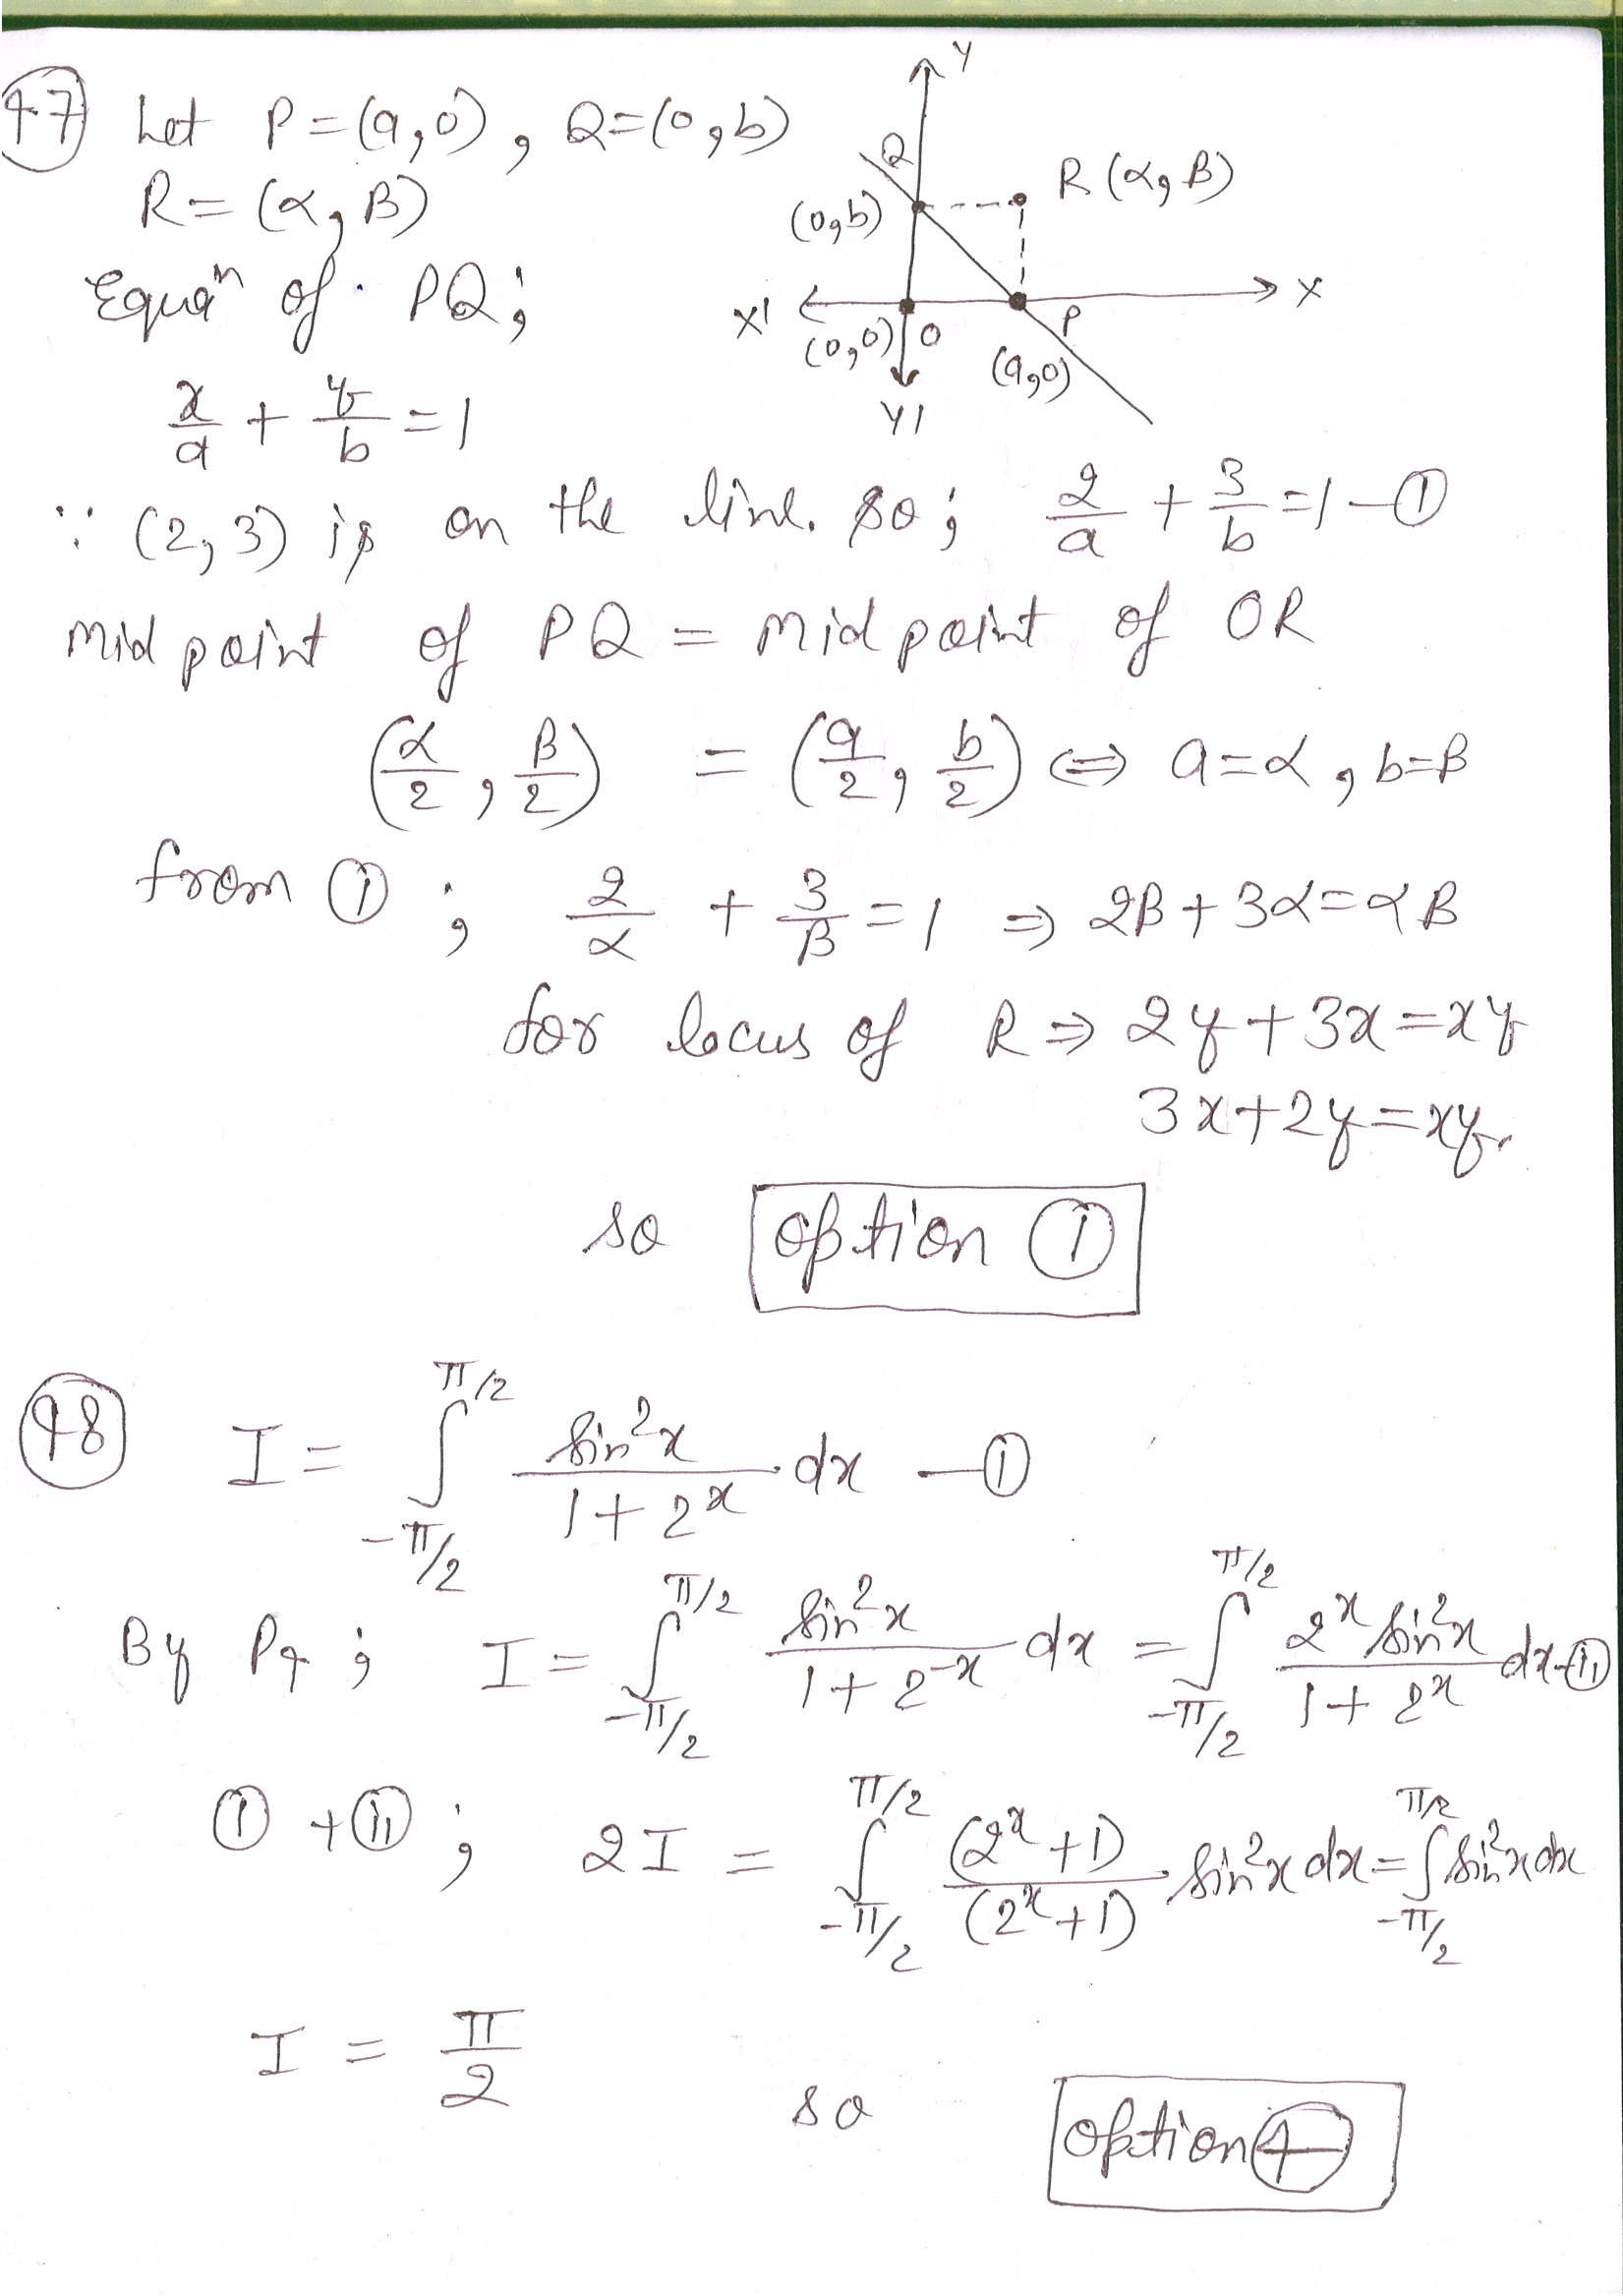 47 Let P=(a,0), Q=(0,b)
R=(α,β)
Equaⁿ of PQ;
x/a + y/b = 1
Y
Q
(0,b)
R(α,β)
X'
X
(0,0) O
P
(a,0)
Y'
∵ (2,3) is on the line. so; 2/a + 3/b = 1 - ①
Mid point of PQ = Mid point of OR
(α/2, β/2) = (a/2, b/2) ⇔ a=α, b=β
from ①; 2/α + 3/β = 1 ⇒ 2β+3α=αβ
for locus of R ⇒ 2y+3x=xy
3x+2y=xy.
so option ①
48 I = ∫_{-π/2}^{π/2} sin²x/(1+2^x) dx — ①
By P4; I = ∫_{-π/2}^{π/2} sin²x/(1+2^{-x}) dx = ∫_{-π/2}^{π/2} 2^x sin²x/(1+2^x) dx - ⑪
① + ⑪; 2I = ∫_{-π/2}^{π/2} (2^x+1)/(2^x+1) . sin²x dx = ∫_{-π/2}^{π/2} sin²x dx
I = π/2
so option ④